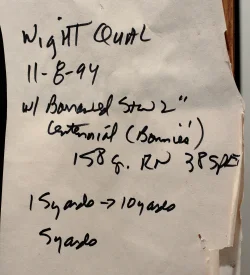 NigHT QUAL
11-8-94
w/ Borrowed S&W 2"
Centennial (Bonnies')
158 g. RN 38 SPL
15 yards → 10 yards
5 yards